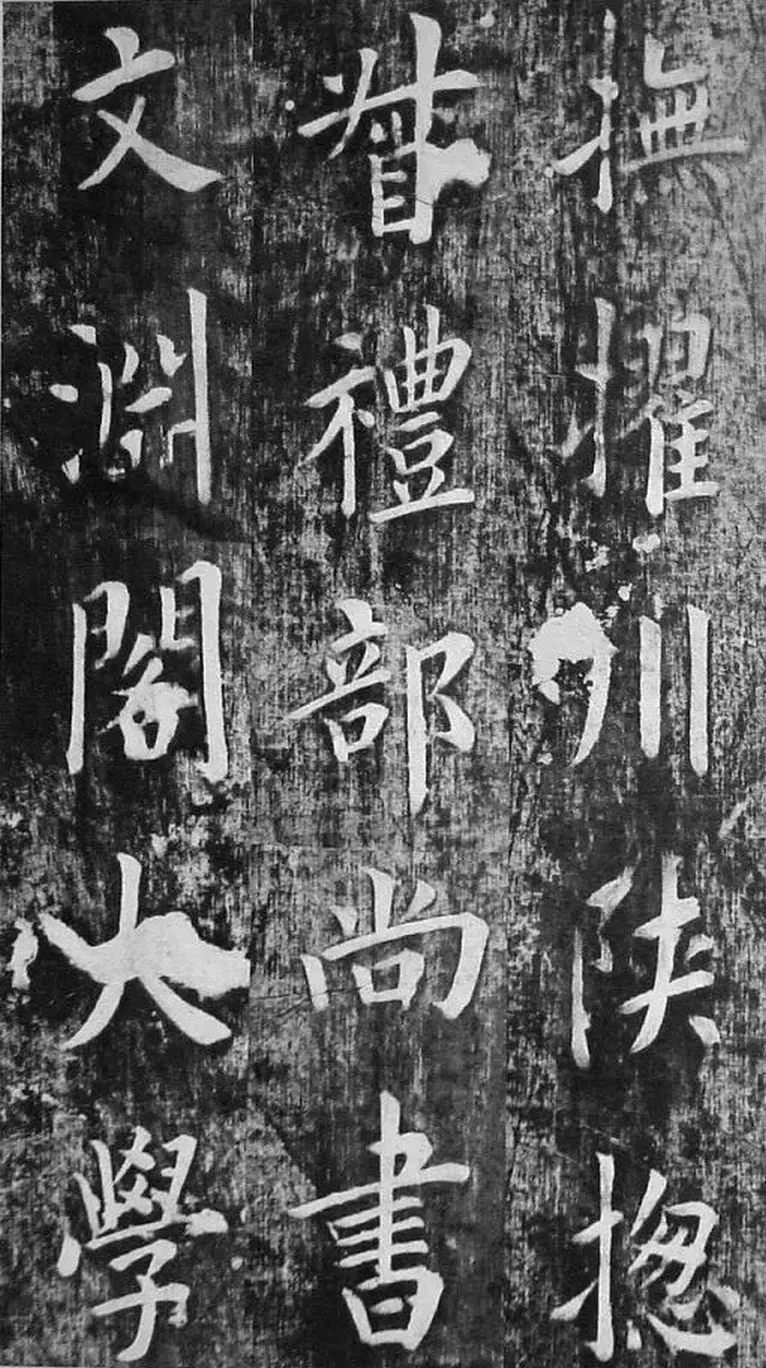 撫擢川陜揔
督禮部尚書
文淵閣大學